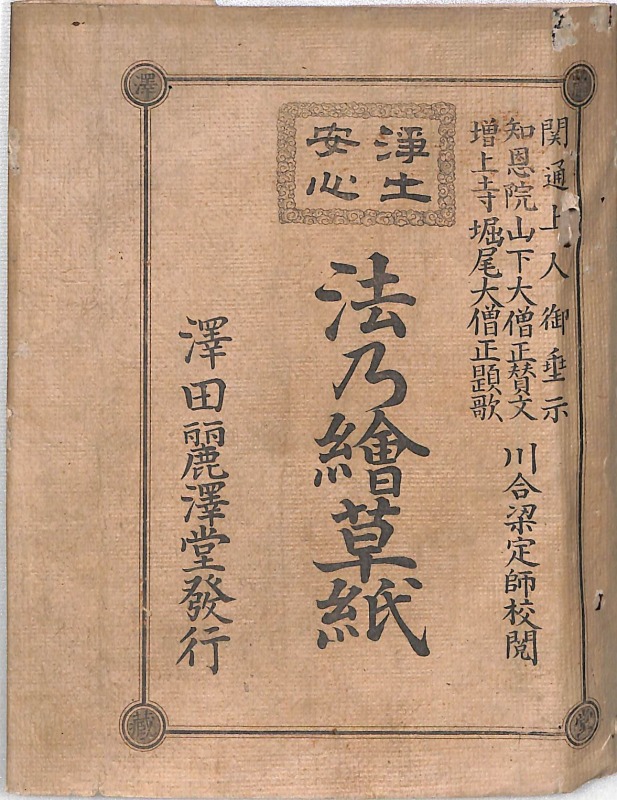 関通上人御垂示
知恩院山下大僧正賛文
増上寺堀尾大僧正題歌
川合梁定師校閲
浄土
安心
法乃繪草紙
澤田麗澤堂發行
澤
藏